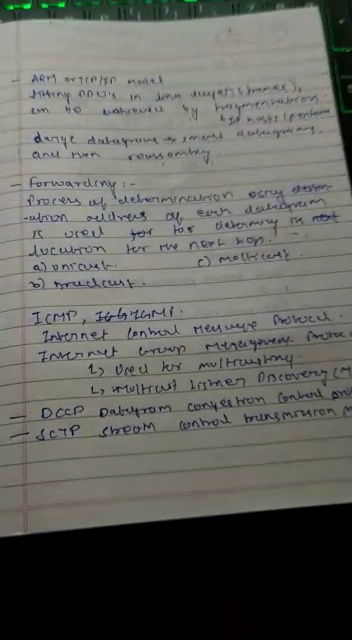 - ARM or TCP/IP model
fitting PDU's in data layer (frames),
can be achieved by fragmentation.
large datagrams → small datagrams
and then reassembly
- Forwarding :-
Process of determination using
-ation address of each datagram
is used for determing
location for the next hop.
a) unicast c) multicast
b) broadcast
ICMP, IGMP.
Internet Control Message Protocol.
Internet Group Management
↳ Used for multicasting.
↳ multicast listner Discovery
- DCCP Datagram congestion control
- SCTP Stream control transmission